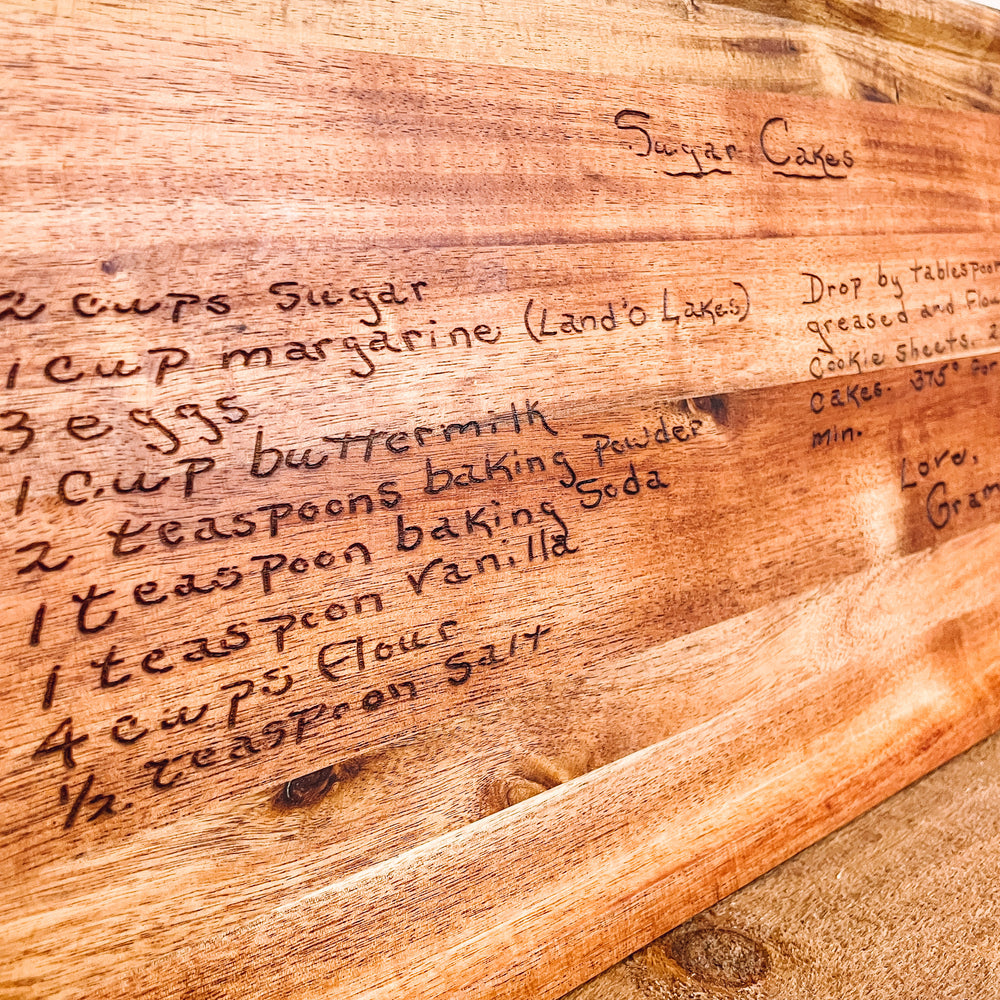 Sugar Cakes
2 cups sugar
1 cup margarine (Land'o Lakes)
3 eggs
1 cup buttermilk
2 teaspoons baking powder
1 teaspoon baking soda
1 teaspoon vanilla
4 cups flour
1/2 teaspoon salt
Drop by tablespoon
greased and
cookie sheets.
cakes. 375° for
min.
Love,